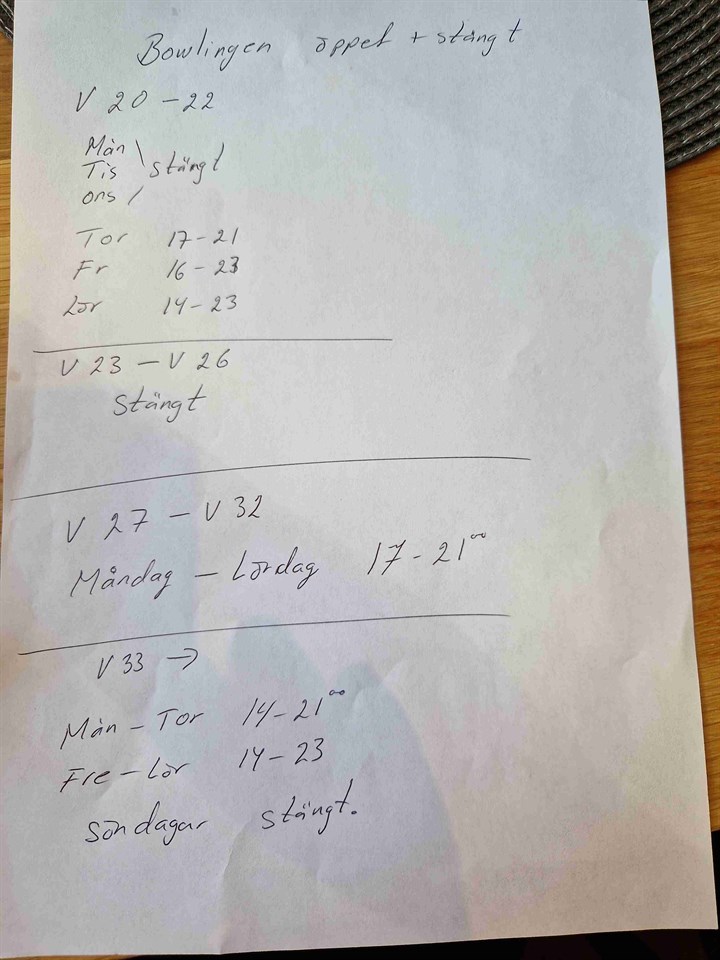 Bowlingen öppet + stängt
V 20 - 22
Mån
Tis stängt
ons
Tor 17-21
Fr 16-23
Lör 14-23
V 23 - V 26
Stängt
V 27 - V 32
Måndag - Lördag 17-21⁰⁰
V 33 →
Mån - Tor 14-21⁰⁰
Fre - Lör 14-23
söndagar stängt.